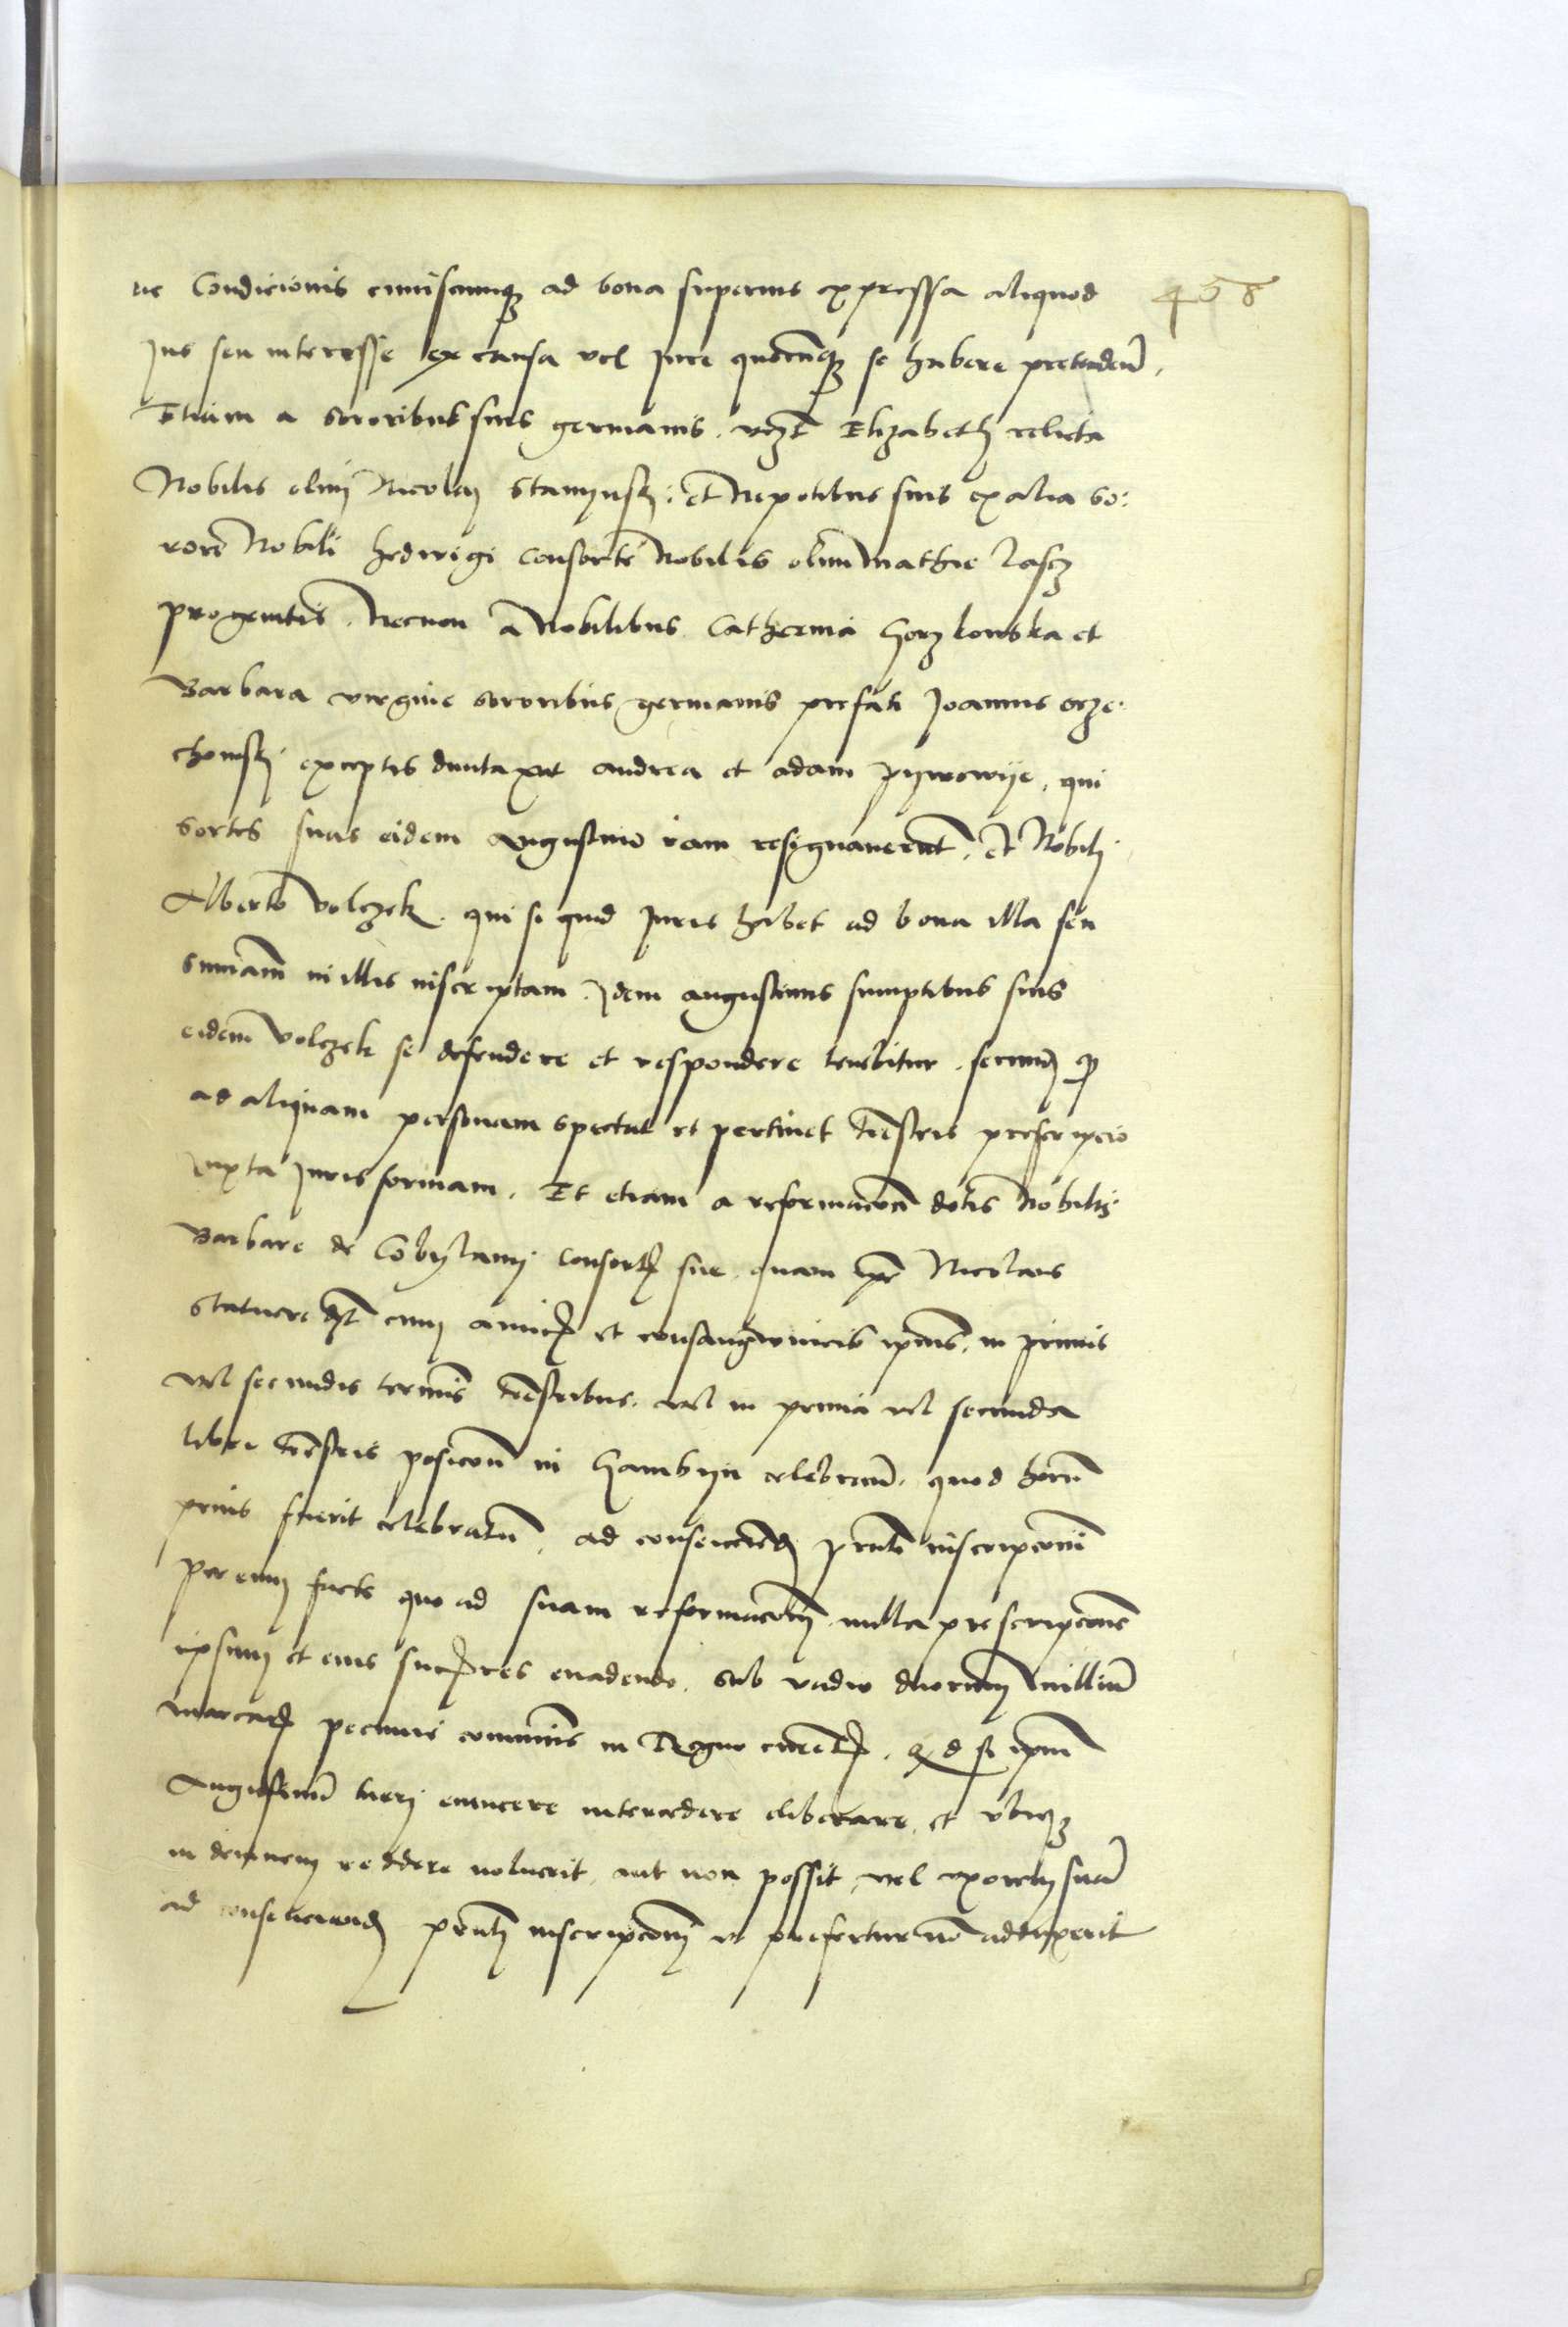 ue Condicionis cuiuscumq3 ad bona superius expressa aliquod 458
Jus seu interesse ex causa vel Jure quocumq3 se habere pretendeñ.
Etiam a sororibus suis germanis. vz̃t Elizabeth relicta
Nobilis olim Nicolai Stanynsky. et Nepotibus suis ex alia so:
rore Nobili hedwigi consorte Nobilis olim mathie lascz
progenitis. Necnon a Nobilibus Catherina Gorzkowska et
Barbara virgine sororibus germanis prefati Joannis orze:
chowsky exceptis duntaxat andrea et adam pywowye, qui
sortes suas eidem Augustino iam resignauerunt. et Nobili
Alberto volczek. qui si quid Juris habet ad bona illa seu
summam in illis inscriptam. Idem augustinus sumptibus suis
eidem volczek se defendere et respondere tenebitur. secund
ad aliquam personam spectat et pertinet terrestris prescripcio
iuxta Juris formam. Et etiam a reformacone dotis Nobilis
Barbare de Cobylany consortis sue. quam ipse Nicolaus
statuere debet cum amicis et consangwineis ipsius. in primis
vel secundis terminis terrestribus. vel in prima vel secunda
libri terrestris posicone in celebrand. quod horum
prius fuerit celebratum. ad consenciend pñti inscripconi
per eum facte quo ad suam reformaconem. nulla prescripcone
ipsum et eius successores euadendo. sub vadio duorum Millium
marcarum pecunie communis in Regno currentis. Qd si ipm
Augustinum tueri euincere intercedere eliberare. et vbiq3
indemnem reddere noluerit, aut non possit, vel vxorem suam
ad consenciend pñti inscripconi vt prefertur non adduxerit